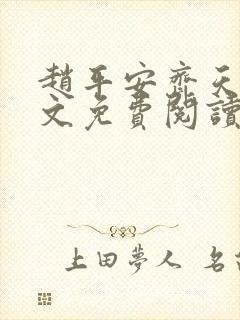 趙平安齊天
文免費閱讀
上田夢人 名